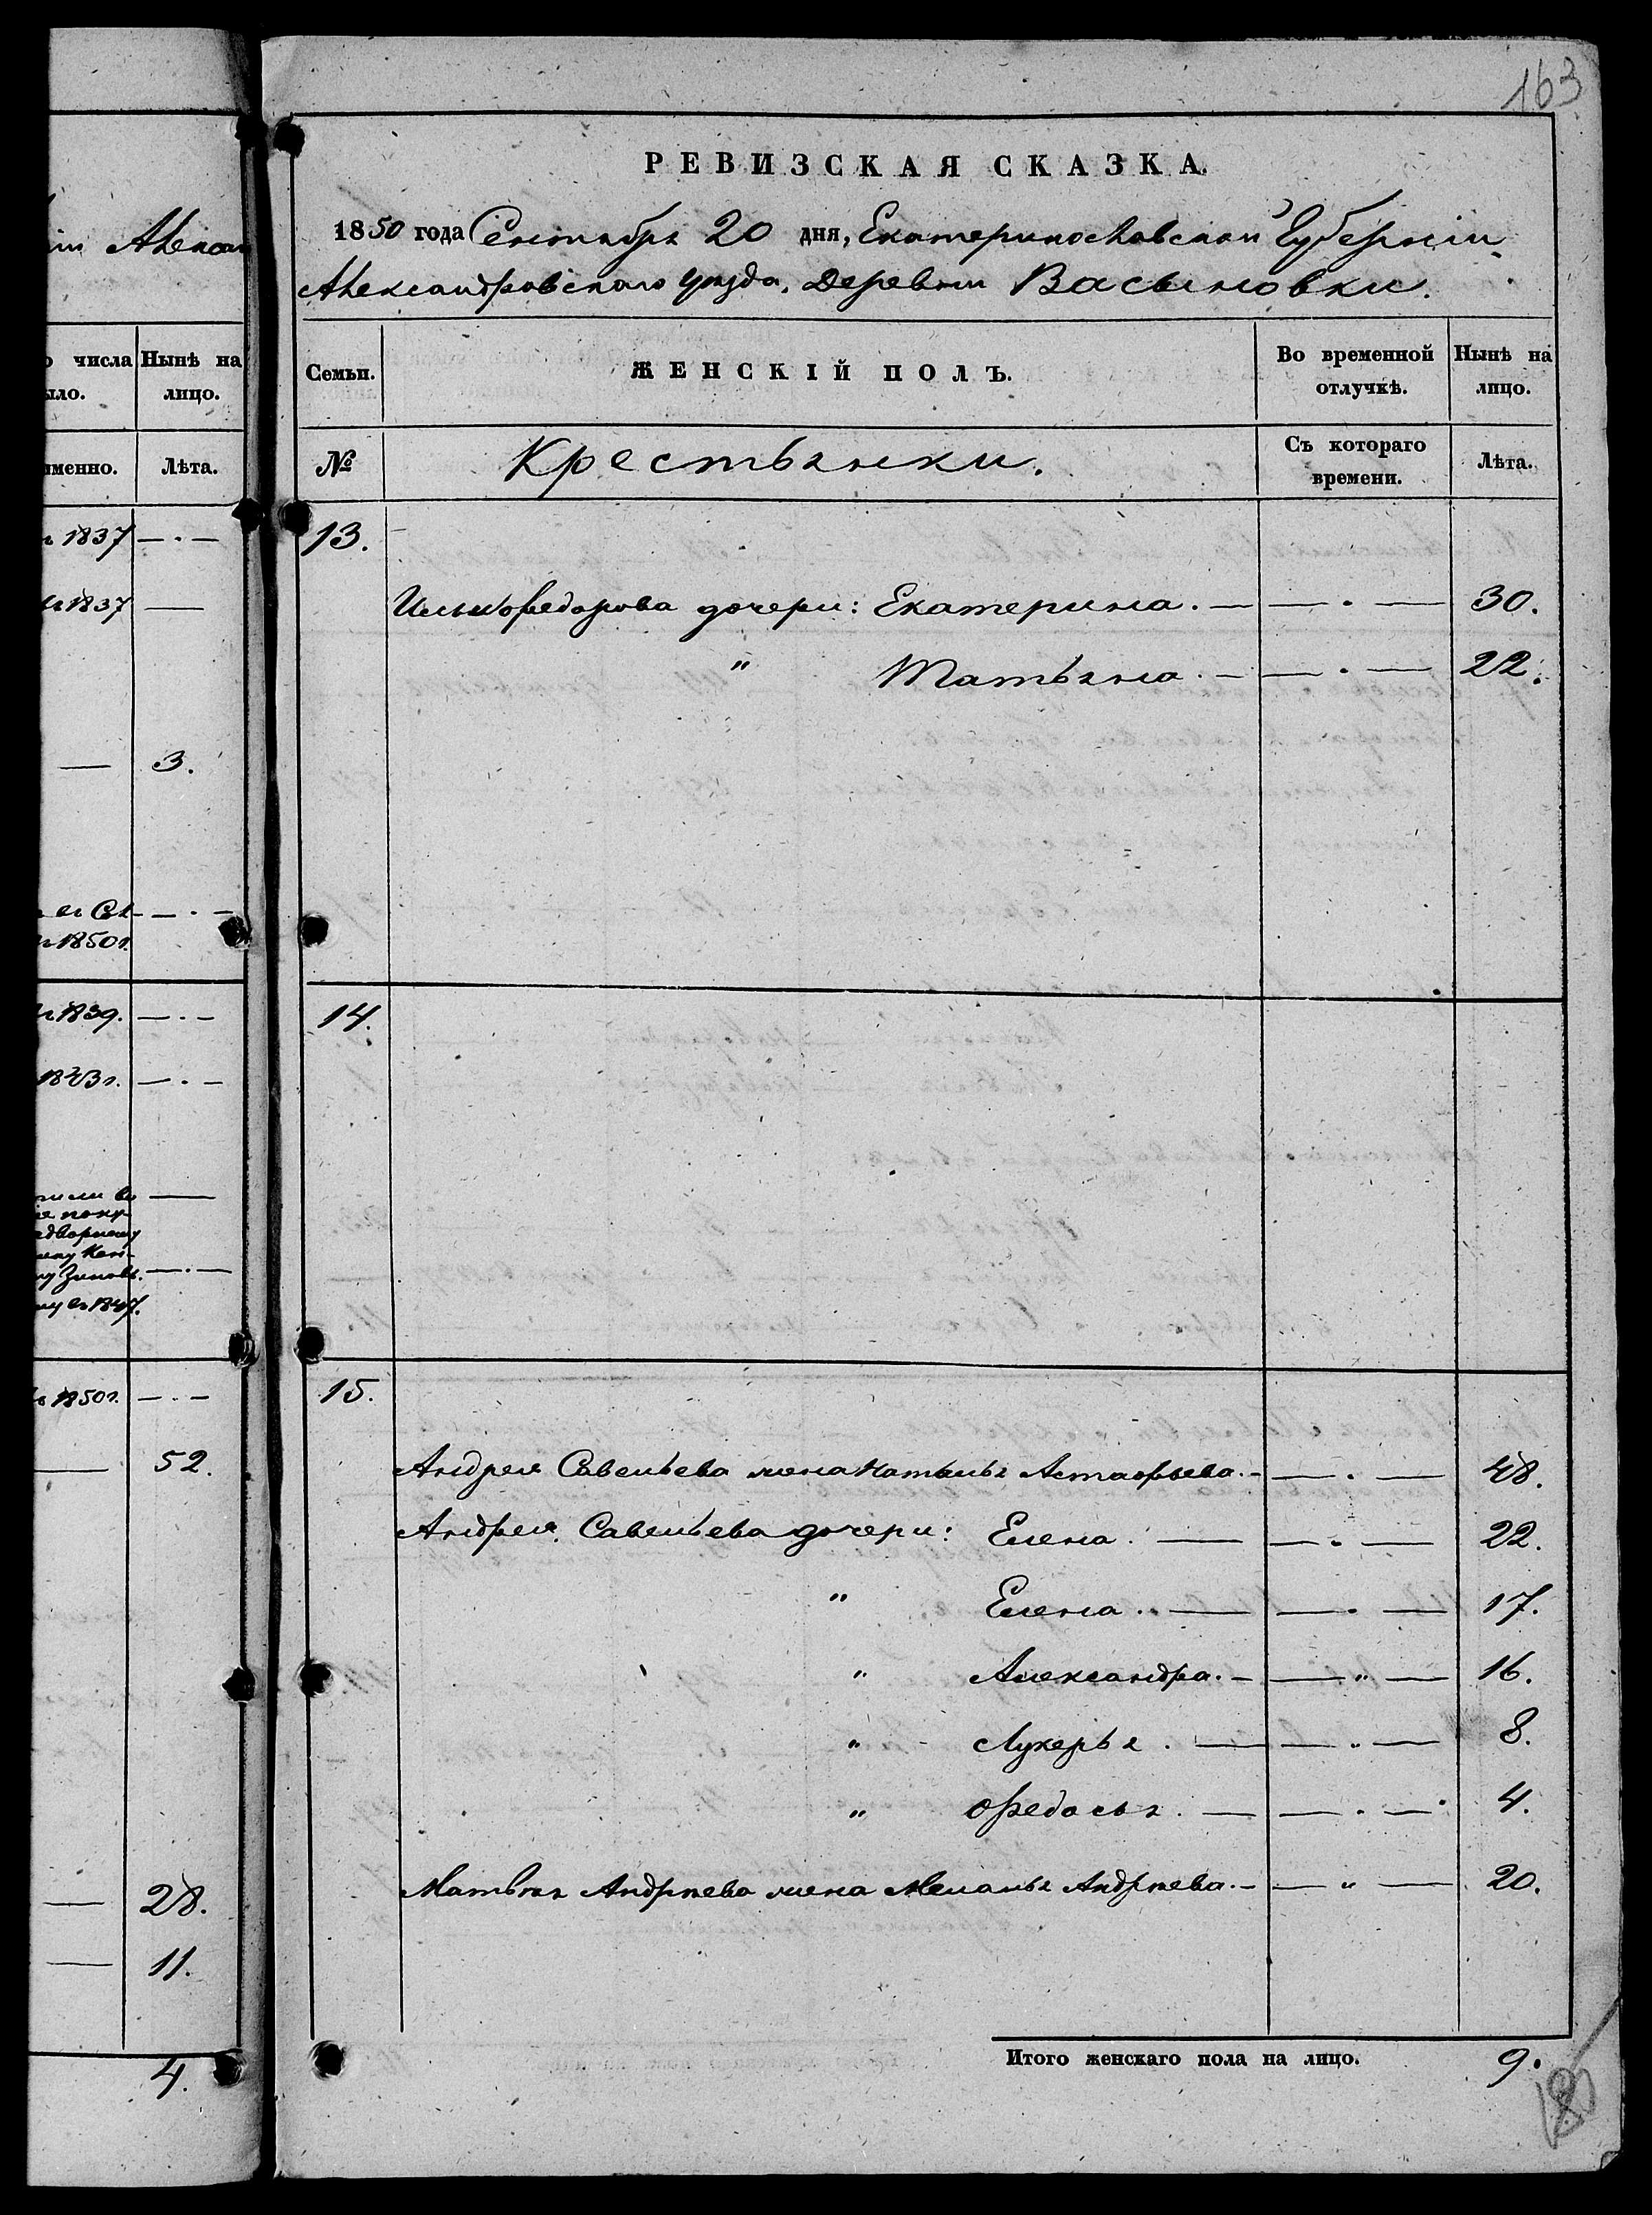 163
РЕВИЗСКАЯ СКАЗКА.
1850 года Сентября 20 дня, Екатеринославской Губерніи
Александровскаго уѣзда, Деревни Васыновки.
Семьи. ЖЕНСКІЙ ПОЛЪ. Во временной отлучкѣ. Нынѣ на лицо.
№ Крестьянки. Съ котораго времени. Лѣта.
13.
Федорова дочери: Екатерина. — — . — 30.
" Татьяна. — — . — 22.
14.
15.
Андрея Савельева жена Наталья Астафьева. — — . — 48.
Андрея Савельева дочери: Елена. — — . — 22.
" Елена. — — . — 17.
" Александра. — — " — 16.
" Лукерья. — — " — 8.
" Федосья. — — . — 4.
Матвѣя Андрѣева жена Меланья Андрѣева. — — " — 20.
Итого женскаго пола на лицо. 9.
числа Нынѣ на
лицо.
Лѣта.
1837 — . —
1837 —
— 3.
1850 г.
1839. — . —
1843 г. — . —
1847.
1850 г. — . —
— 52.
— 28.
— 11.
4.